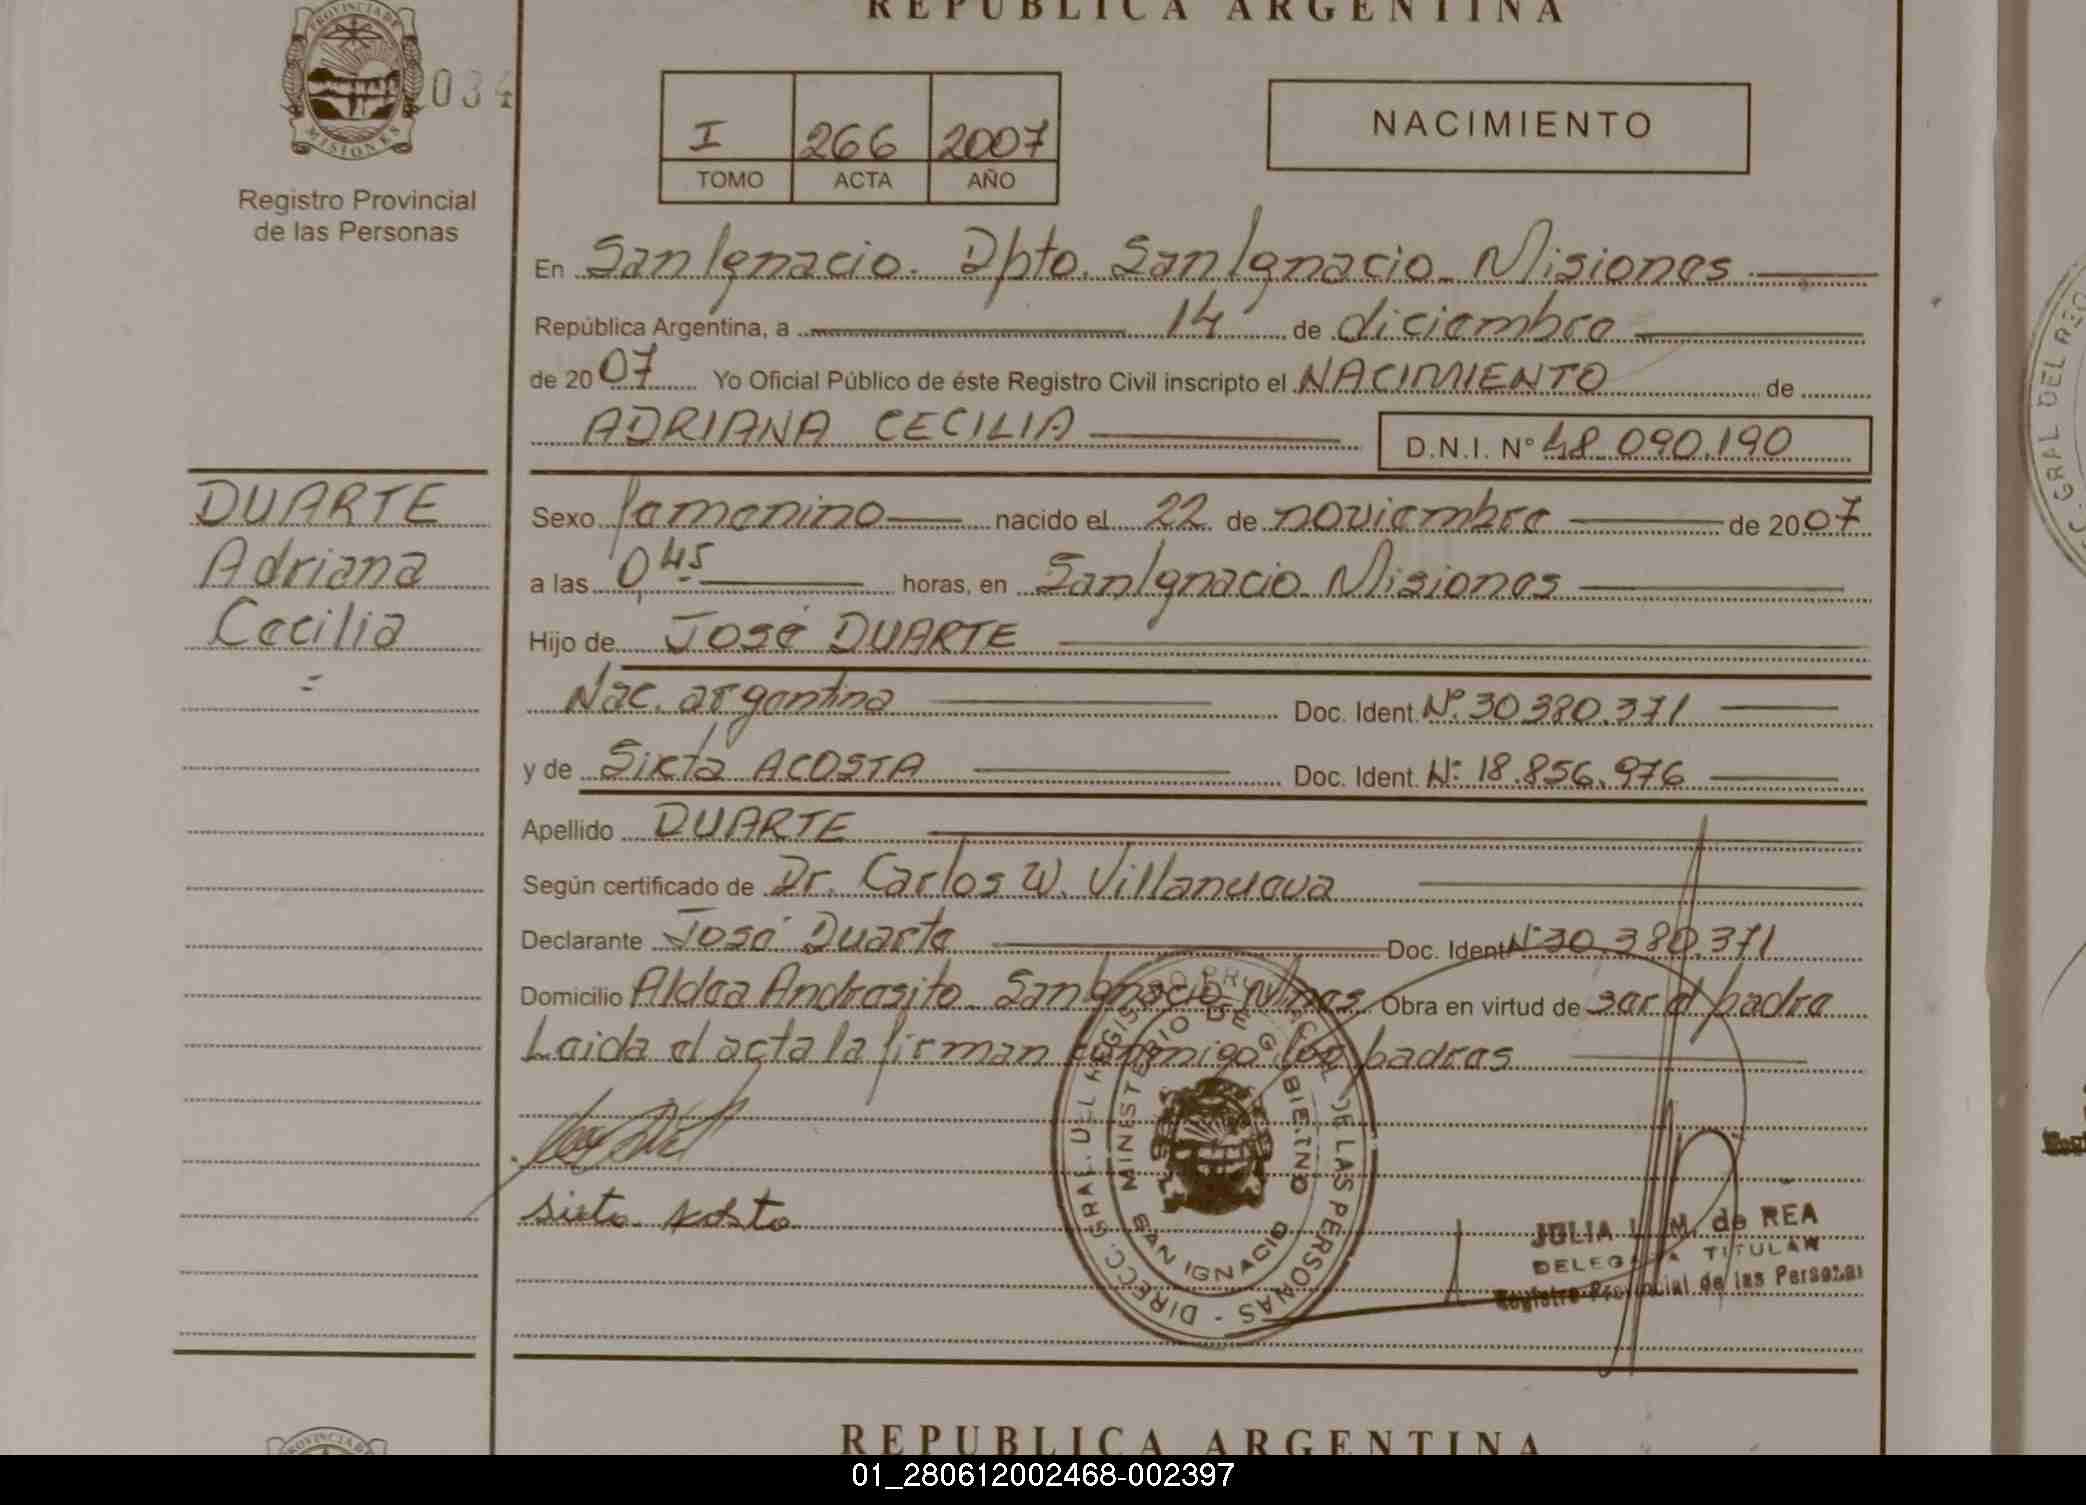 REPUBLICA ARGENTINA
PROVINCIA DE
MISIONES
034
Registro Provincial
de las Personas
I 266 2007
TOMO ACTA AÑO
NACIMIENTO
En San Ignacio. Dpto. San Ignacio. Misiones
República Argentina, a 14 de diciembre
de 2007 Yo Oficial Público de éste Registro Civil inscripto el NACIMIENTO de
ADRIANA CECILIA D.N.I. Nº 48.090.190
DUARTE
Adriana
Cecilia
Sexo femenino nacido el 22 de noviembre de 2007
a las 0,45 horas, en San Ignacio. Misiones
Hijo de José DUARTE
Nac. argentina Doc. Ident. Nº 30.380.371
y de Sixta ACOSTA Doc. Ident. Nº 18.856.976
Apellido DUARTE
Según certificado de Dr. Carlos W. Villanueva
Declarante José Duarte Doc. Ident Nº 30.380.371
Domicilio Aldea Andresito. San Ignacio Mnes. Obra en virtud de ser el padre
Leida el acta la firman conmigo los padres
DIRECC. GRAL. DEL REGISTRO PROVINCIAL DE LAS PERSONAS -
MINISTERIO DE GOBIERNO
SAN IGNACIO
JULIA L. M. de REA
DELEGADA TITULAR
Registro Provincial de las Personas
REPUBLICA ARGENTINA
PROVINCIA DE
GRAL DEL REG
01_280612002468-002397